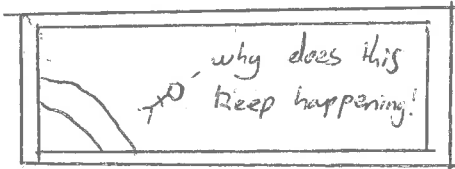 why does this
keep happening!